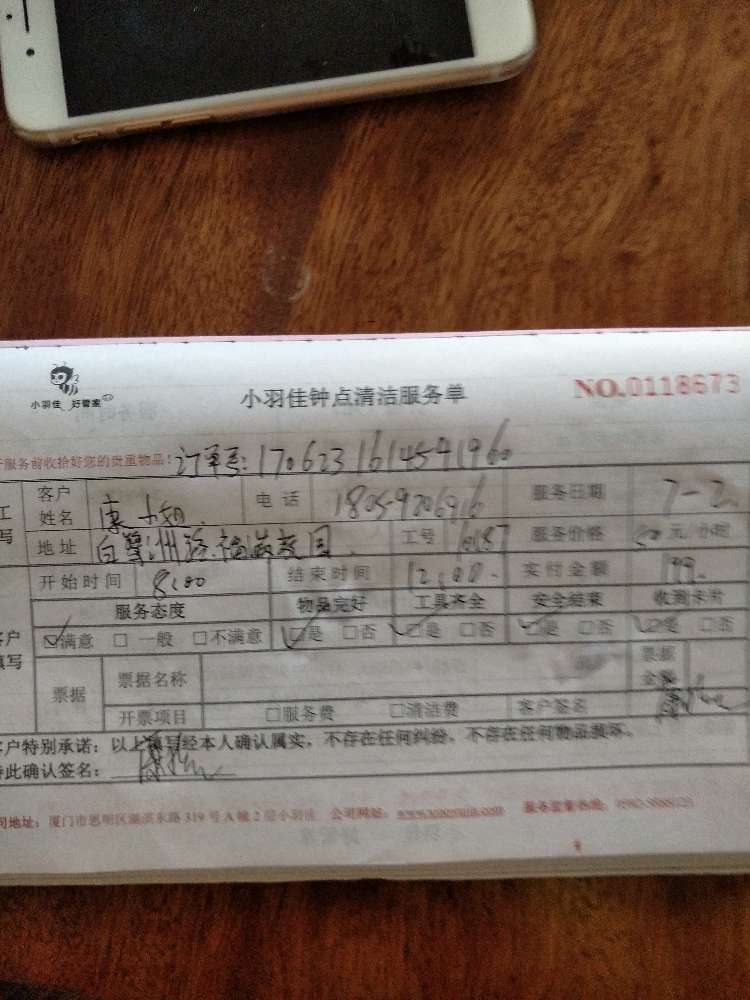 小羽佳 好管家
小羽佳钟点清洁服务单
NO.0118673
服务前收拾好您的贵重物品! 订单号:1706231614541960
工
写
客户姓名 唐小姐 电话 18059206916 服务日期 7-2
地址 白鹭洲路 工号 服务价格 50元/小时
开始时间 8:00 结束时间 12:00 实付金额 199
服务态度 物品完好 工具齐全 安全结束 收到卡片
☑满意 □一般 □不满意 ☑是 □否 ☑是 □否 ☑是 □否 ☑是 □否
客户
填写
票据 票据名称 票据金额
开票项目 □服务费 □清洁费 客户签名
客户特别承诺:以上填写经本人确认属实,不存在任何纠纷,不存在任何物品损坏。
特此确认签名:
司地址:厦门市思明区湖滨东路319号A幢2层小羽佳 公司网站: 服务监督热线: